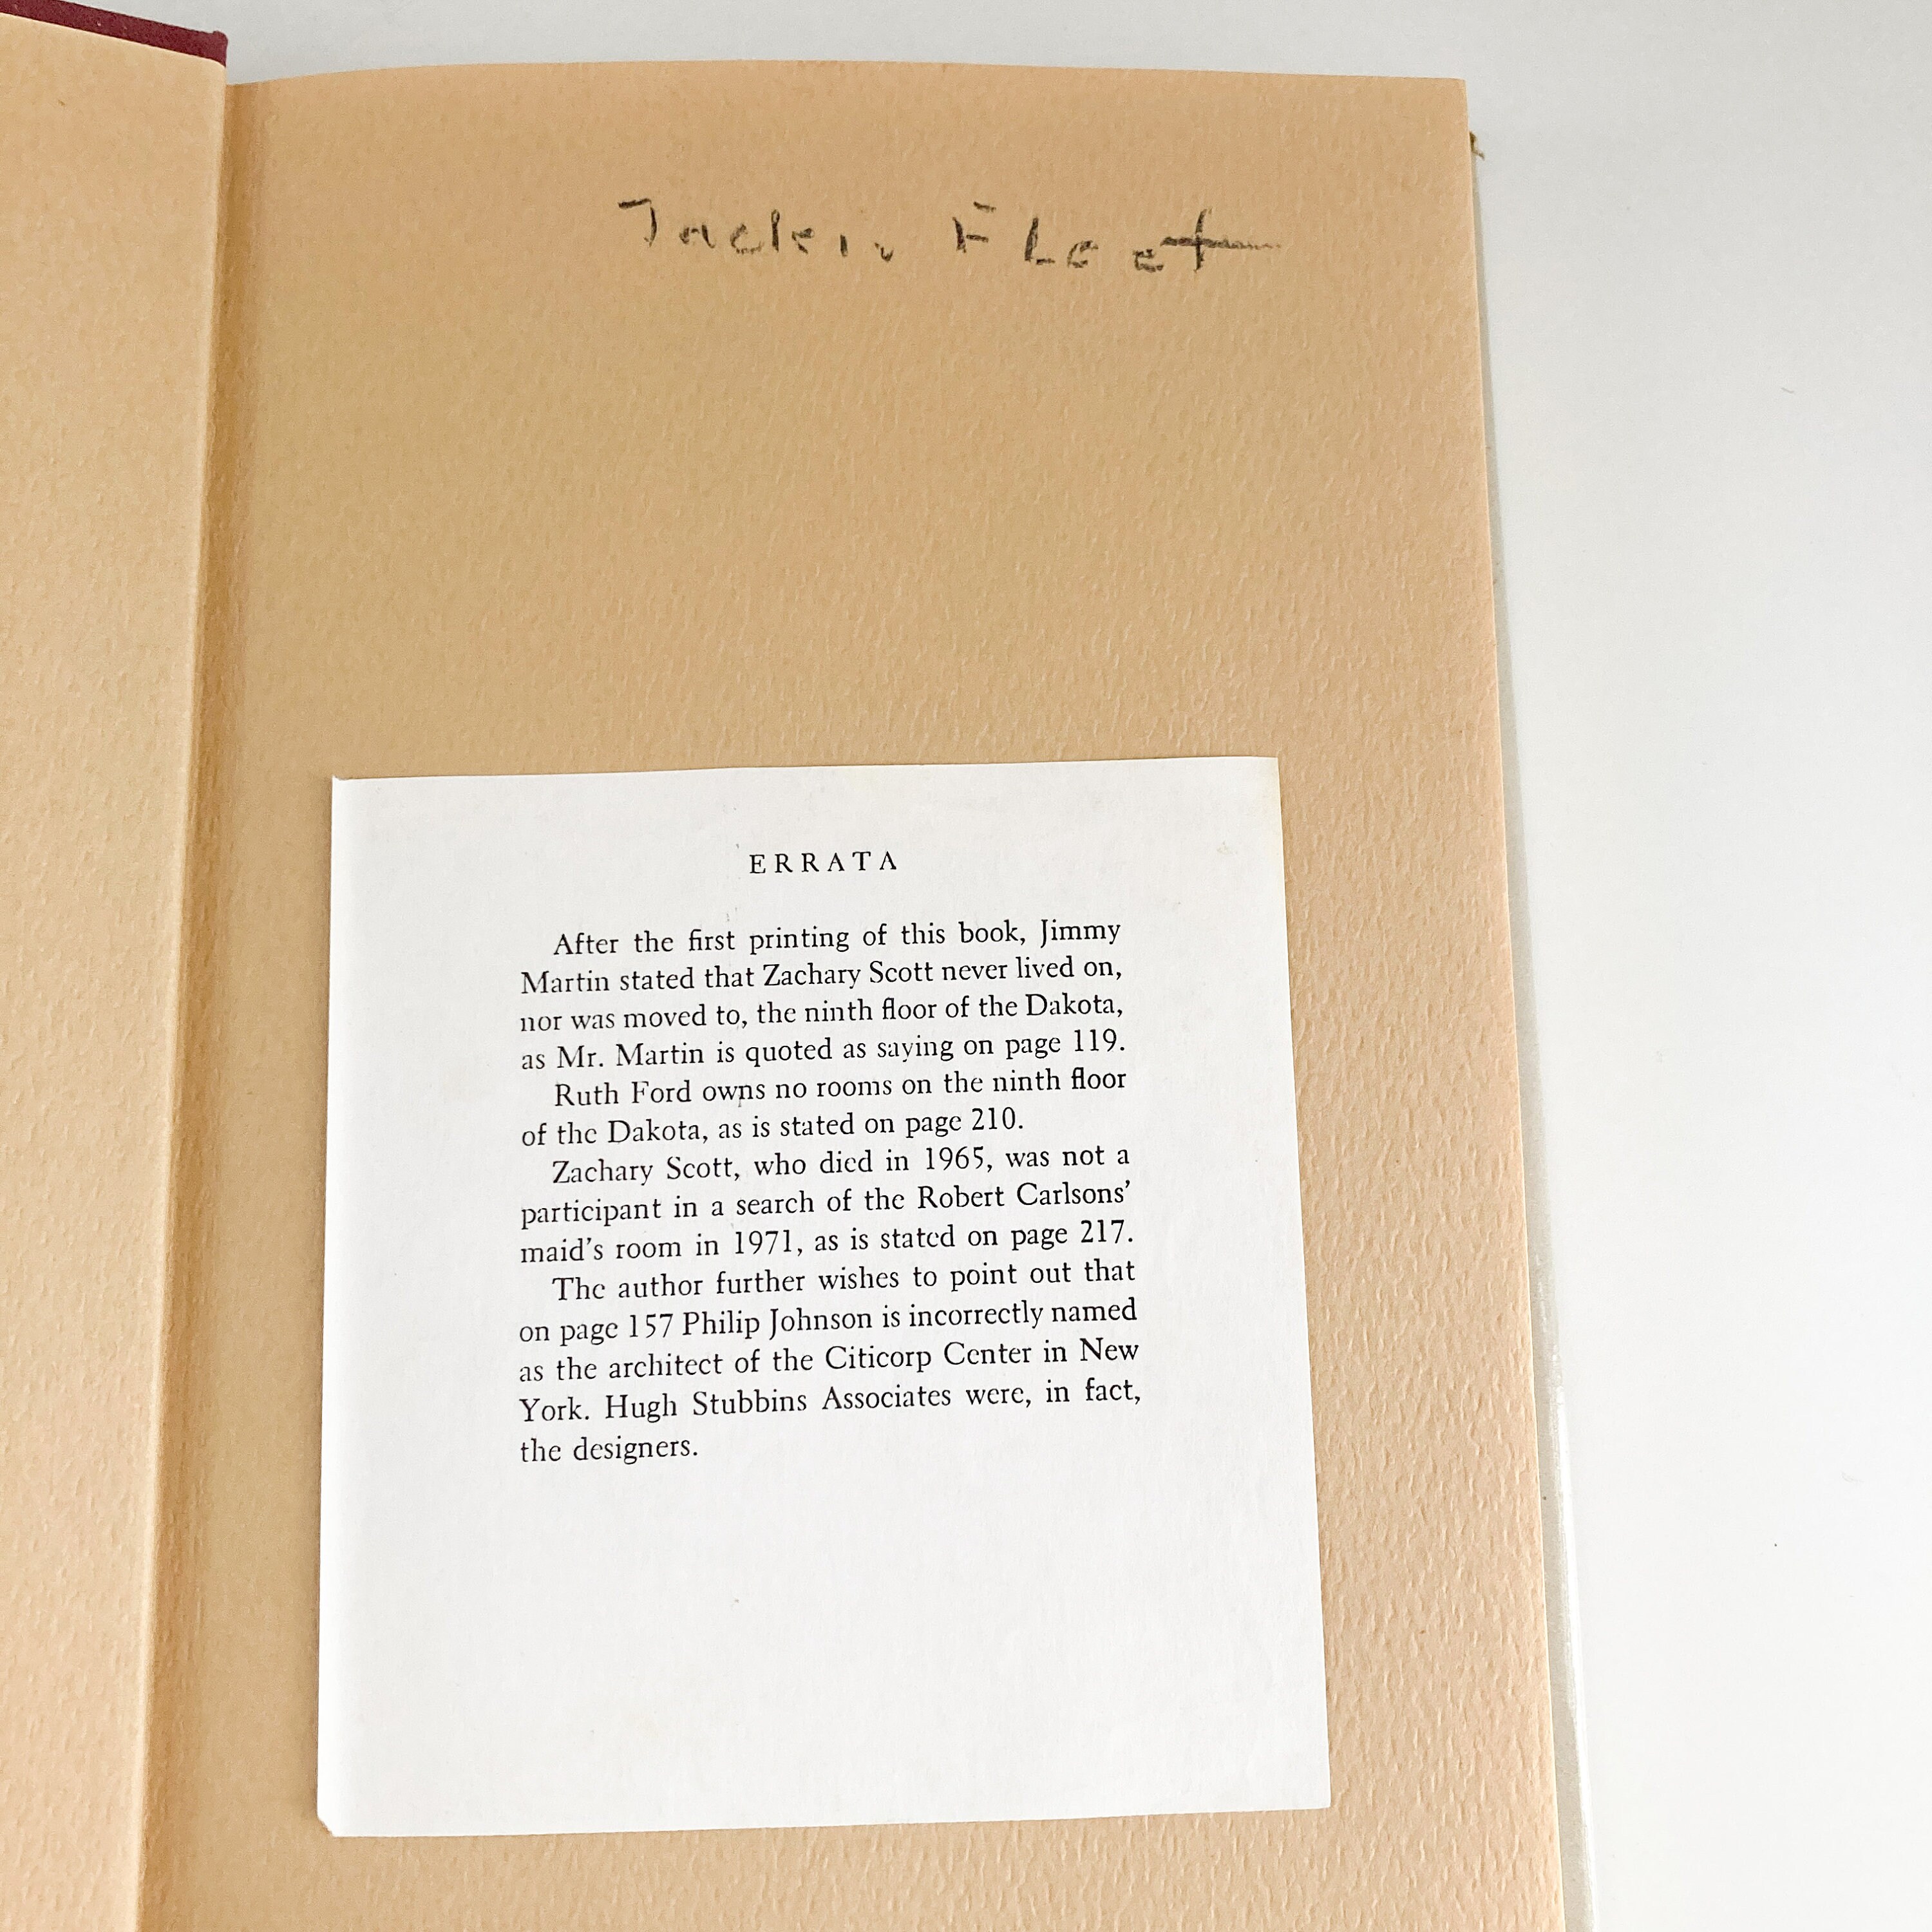 Jackie Fleet
ERRATA
After the first printing of this book, Jimmy
Martin stated that Zachary Scott never lived on,
nor was moved to, the ninth floor of the Dakota,
as Mr. Martin is quoted as saying on page 119.
Ruth Ford owns no rooms on the ninth floor
of the Dakota, as is stated on page 210.
Zachary Scott, who died in 1965, was not a
participant in a search of the Robert Carlsons'
maid's room in 1971, as is stated on page 217.
The author further wishes to point out that
on page 157 Philip Johnson is incorrectly named
as the architect of the Citicorp Center in New
York. Hugh Stubbins Associates were, in fact,
the designers.